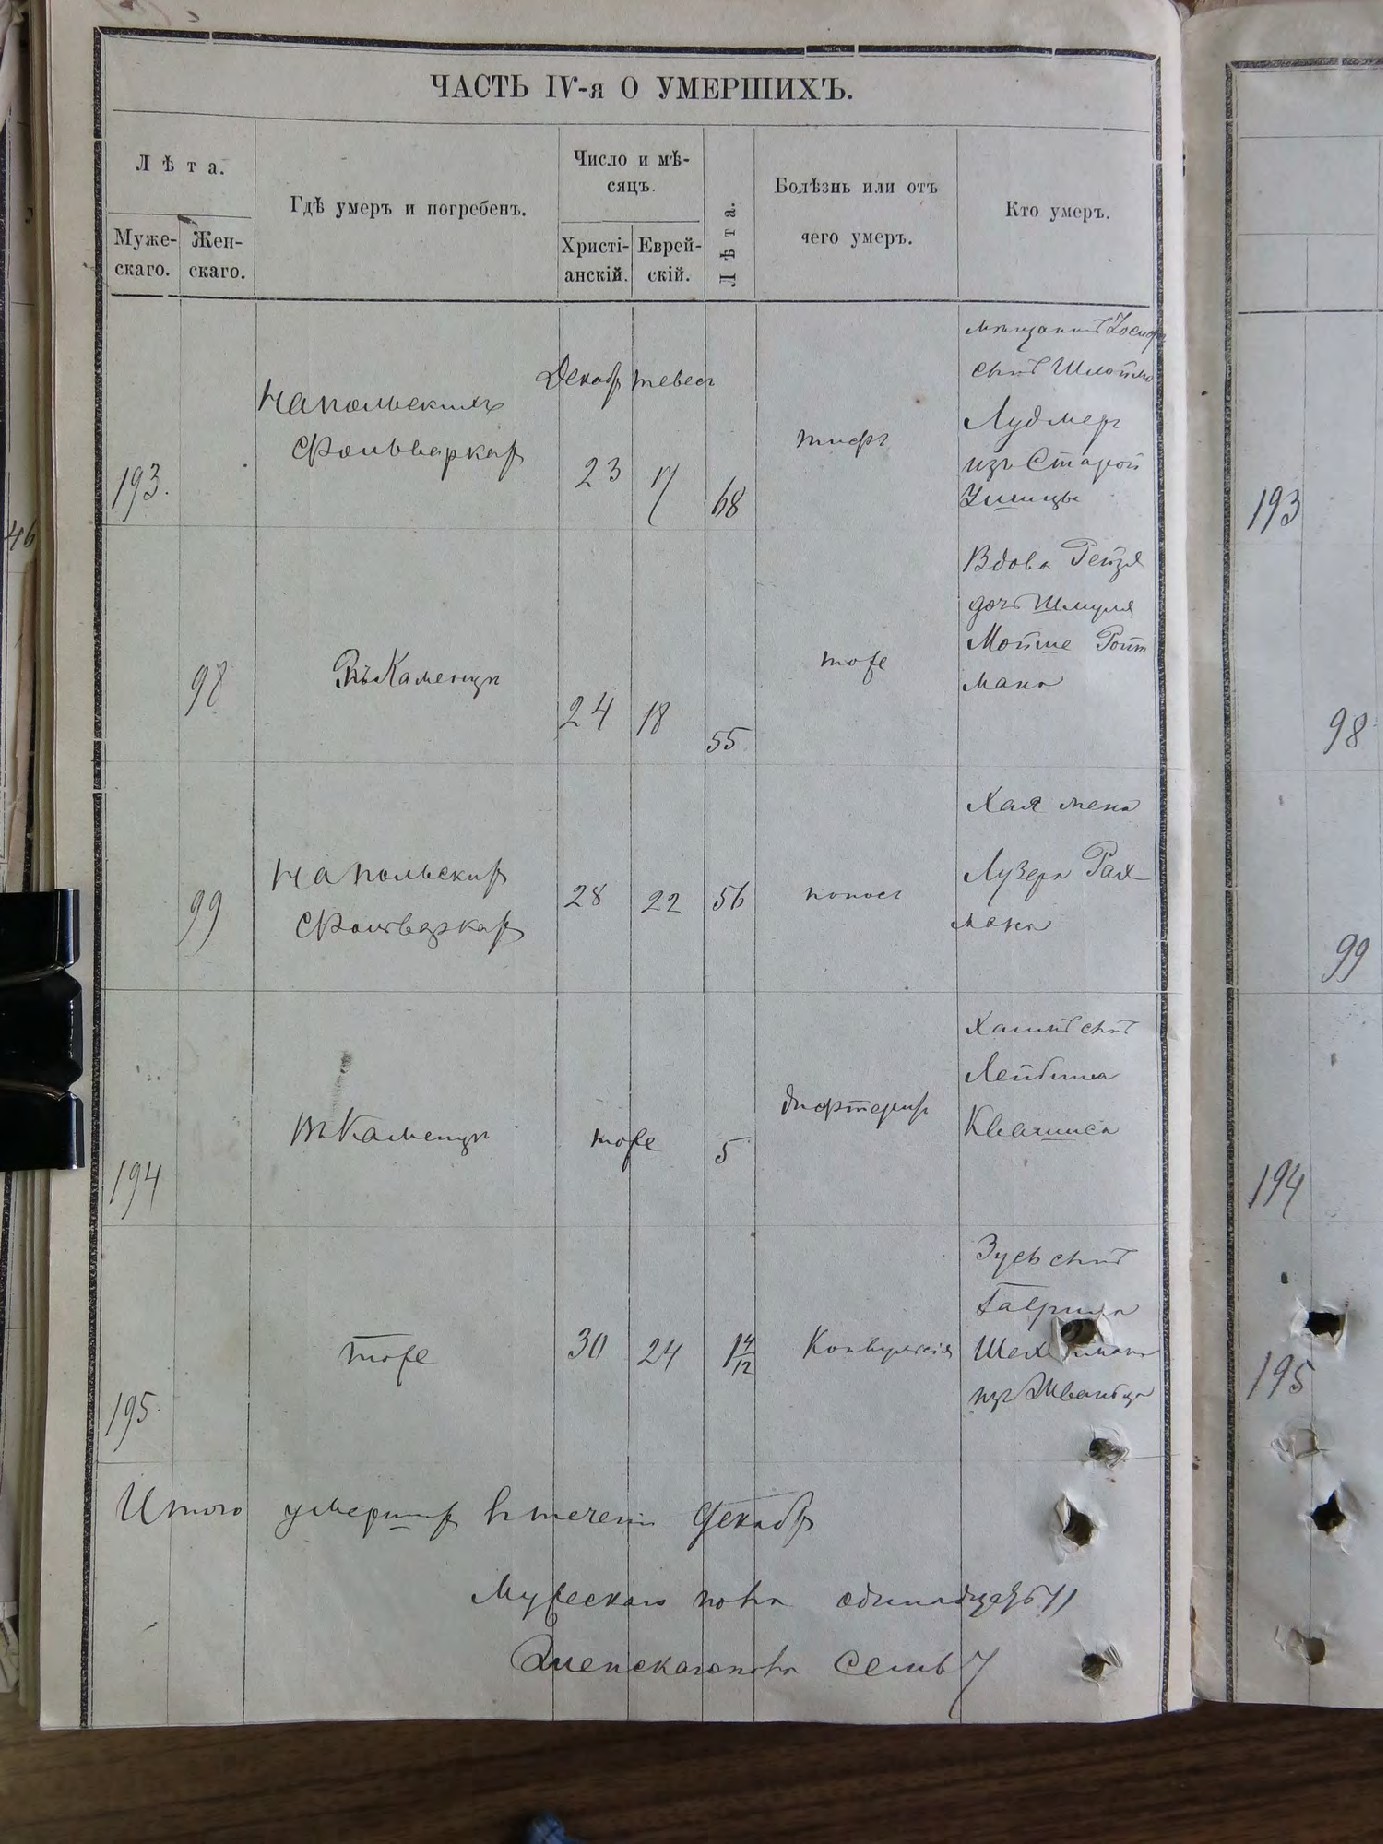 ЧАСТЬ IV-я О УМЕРШИХЪ.
Лѣта.
Муже-
скаго.
Жен-
скаго.
Гдѣ умеръ и погребенъ.
Число и мѣ-
сяцъ.
Христі-
анскій.
Еврей-
скій.
Лѣта.
Болѣзнь или отъ
чего умеръ.
Кто умеръ.
193.
На польскихъ
фольварках
Декаб
23
тевес
17
68
тифъ
сынъ
изъ Старой
Ушицы
98
Въ Каменцѣ
24
18
55
тоже
Вдова Рейзя
дочь Шмуля
Ройт
мана
99
На польских
фольварках
28
22
56
понос
Хая жена
Лузера Рах-
мана
194
Въ Каменцѣ
тоже
5
дифтерит
Хаимъ сынъ
Лейбиша
195
тоже
30
24
1 4/12
Конвульсія
Зусь сынъ
Гаврила
изъ Жванца
Итого умерших в течении Декаб
Мужескаго пола одинадцать 11
Женскаго пола семь 7
46
193
98
99
194
195